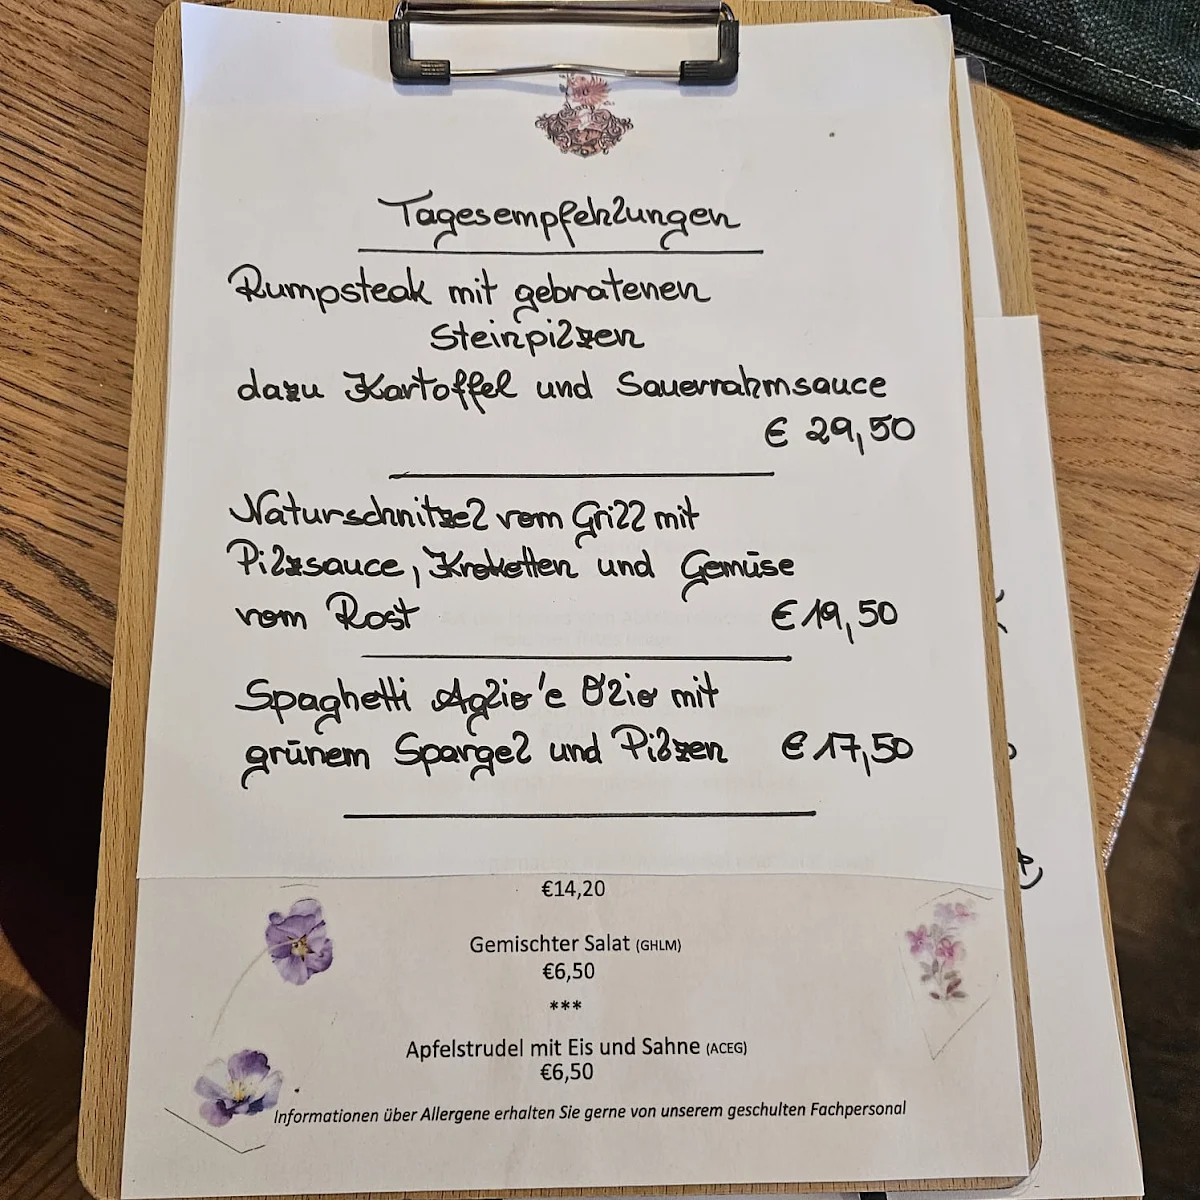 Tagesempfehlungen
Rumpsteak mit gebratenen
Steinpilzen
dazu Kartoffel und Sauerrahmsauce
€ 29,50
Naturschnitzel vom Grill mit
Pilzsauce, Kroketten und Gemüse
vom Rost € 19,50
Spaghetti Aglio'e Olio mit
grünem Spargel und Pilzen € 17,50
€14,20
Gemischter Salat (GHLM)
€6,50
***
Apfelstrudel mit Eis und Sahne (ACEG)
€6,50
Informationen über Allergene erhalten Sie gerne von unserem geschulten Fachpersonal